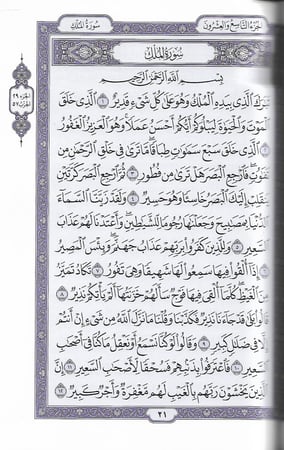 الجزء التاسع والعشرون
سورة الملك
الجزء ٢٩
الحزب ٥٧
سُورَةُ المُلْكِ
بِسْمِ ٱللَّهِ ٱلرَّحْمَٰنِ ٱلرَّحِيمِ
ٱلَّذِي بِيَدِهِ ٱلْمُلْكُ وَهُوَ عَلَىٰ كُلِّ شَيْءٍ قَدِيرٌ ١ ٱلَّذِي خَلَقَ
ٱلْمَوْتَ وَٱلْحَيَوٰةَ لِيَبْلُوَكُمْ أَيُّكُمْ أَحْسَنُ عَمَلًا وَهُوَ ٱلْعَزِيزُ ٱلْغَفُورُ
ٱلَّذِي خَلَقَ سَبْعَ سَمَٰوَٰتٍ طِبَاقًا مَّا تَرَىٰ فِي خَلْقِ ٱلرَّحْمَٰنِ مِن
تَفَٰوُتٍ فَٱرْجِعِ ٱلْبَصَرَ هَلْ تَرَىٰ مِن فُطُورٍ ٣ ثُمَّ ٱرْجِعِ ٱلْبَصَرَ كَرَّتَيْنِ
يَنقَلِبْ إِلَيْكَ ٱلْبَصَرُ خَاسِئًا وَهُوَ حَسِيرٌ ٤ وَلَقَدْ زَيَّنَّا ٱلسَّمَآءَ
ٱلدُّنْيَا بِمَصَٰبِيحَ وَجَعَلْنَٰهَا رُجُومًا لِّلشَّيَٰطِينِ وَأَعْتَدْنَا لَهُمْ عَذَابَ
ٱلسَّعِيرِ ٥ وَلِلَّذِينَ كَفَرُوا۟ بِرَبِّهِمْ عَذَابُ جَهَنَّمَ وَبِئْسَ ٱلْمَصِيرُ
إِذَآ أُلْقُوا۟ فِيهَا سَمِعُوا۟ لَهَا شَهِيقًا وَهِيَ تَفُورُ ٧ تَكَادُ تَمَيَّزُ
مِنَ ٱلْغَيْظِ كُلَّمَآ أُلْقِيَ فِيهَا فَوْجٌ سَأَلَهُمْ خَزَنَتُهَآ أَلَمْ يَأْتِكُمْ نَذِيرٌ ٨
قَالُوا۟ بَلَىٰ قَدْ جَآءَنَا نَذِيرٌ فَكَذَّبْنَا وَقُلْنَا مَا نَزَّلَ ٱللَّهُ مِن شَيْءٍ إِنْ أَنتُمْ
إِلَّا فِي ضَلَٰلٍ كَبِيرٍ ٩ وَقَالُوا۟ لَوْ كُنَّا نَسْمَعُ أَوْ نَعْقِلُ مَا كُنَّا فِيٓ أَصْحَٰبِ
ٱلسَّعِيرِ ١٠ فَٱعْتَرَفُوا۟ بِذَنۢبِهِمْ فَسُحْقًا لِّأَصْحَٰبِ ٱلسَّعِيرِ ١١ إِنَّ
ٱلَّذِينَ يَخْشَوْنَ رَبَّهُم بِٱلْغَيْبِ لَهُم مَّغْفِرَةٌ وَأَجْرٌ كَبِيرٌ ١٢
٢١